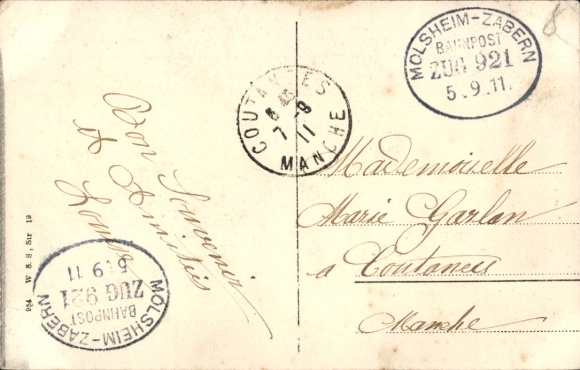 MOLSHEIM-ZABERN
BAHNPOST
ZUG 921
5.9.11.
8
COUTANCES
7-9
11
MANCHE
Bon Souvenir
et Amitiés
Louise
Mademoiselle
Marie Garlan
a Coutances
Manche
MOLSHEIM-ZABERN
BAHNPOST
ZUG 921
5.9.11
954 W. S. S., Str 19